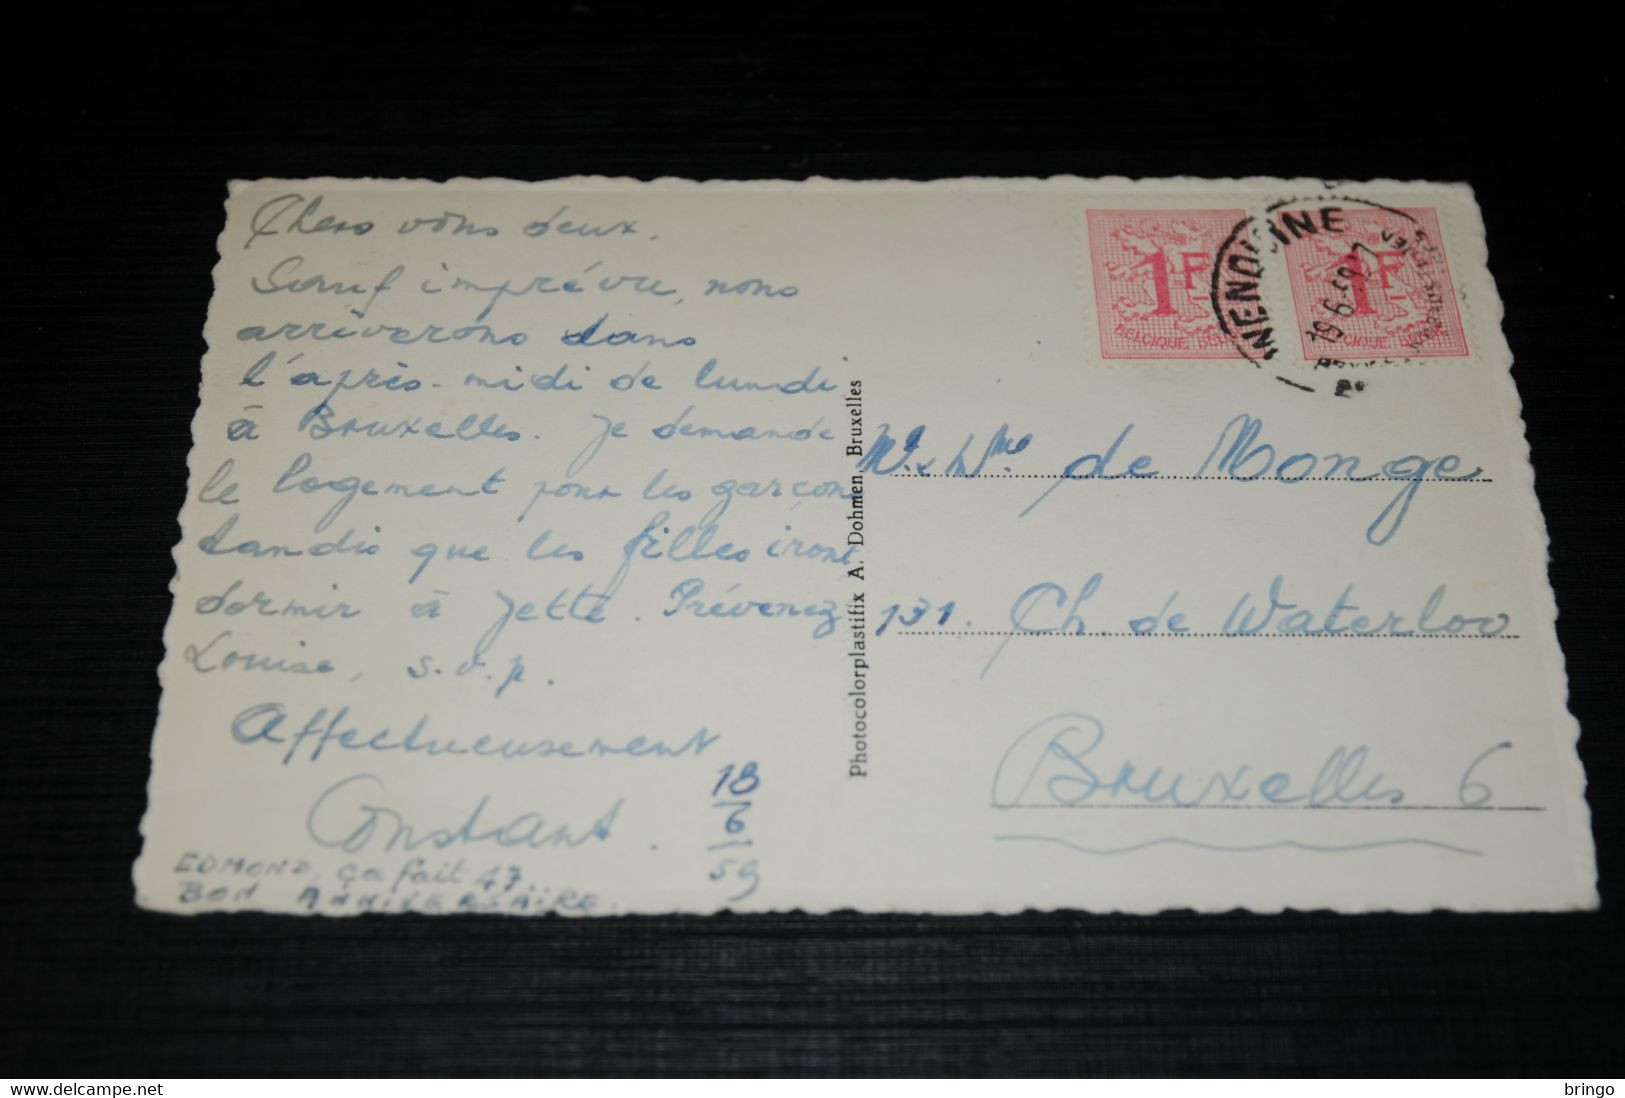 Chers vous deux.
Sauf imprévu, nous
arriverons dans
l'après-midi de lundi
à Bruxelles. Je demande
le logement pour les garçons
tandis que les filles iront
dormir à Jette. Prévenez
Louise, s.v.p.
Affectueusement
Constant.
18
6
59
EDMOND, ça fait 47...
BON ANNIVERSAIRE.
Photocolorplastifix A. Dohmen, Bruxelles
1F
BELGIQUE BEL
1F
BELGIQUE BEL
19.6.59
de Monge
131. Ch. de Waterloo
Bruxelles 6
delcampe.net
bringo